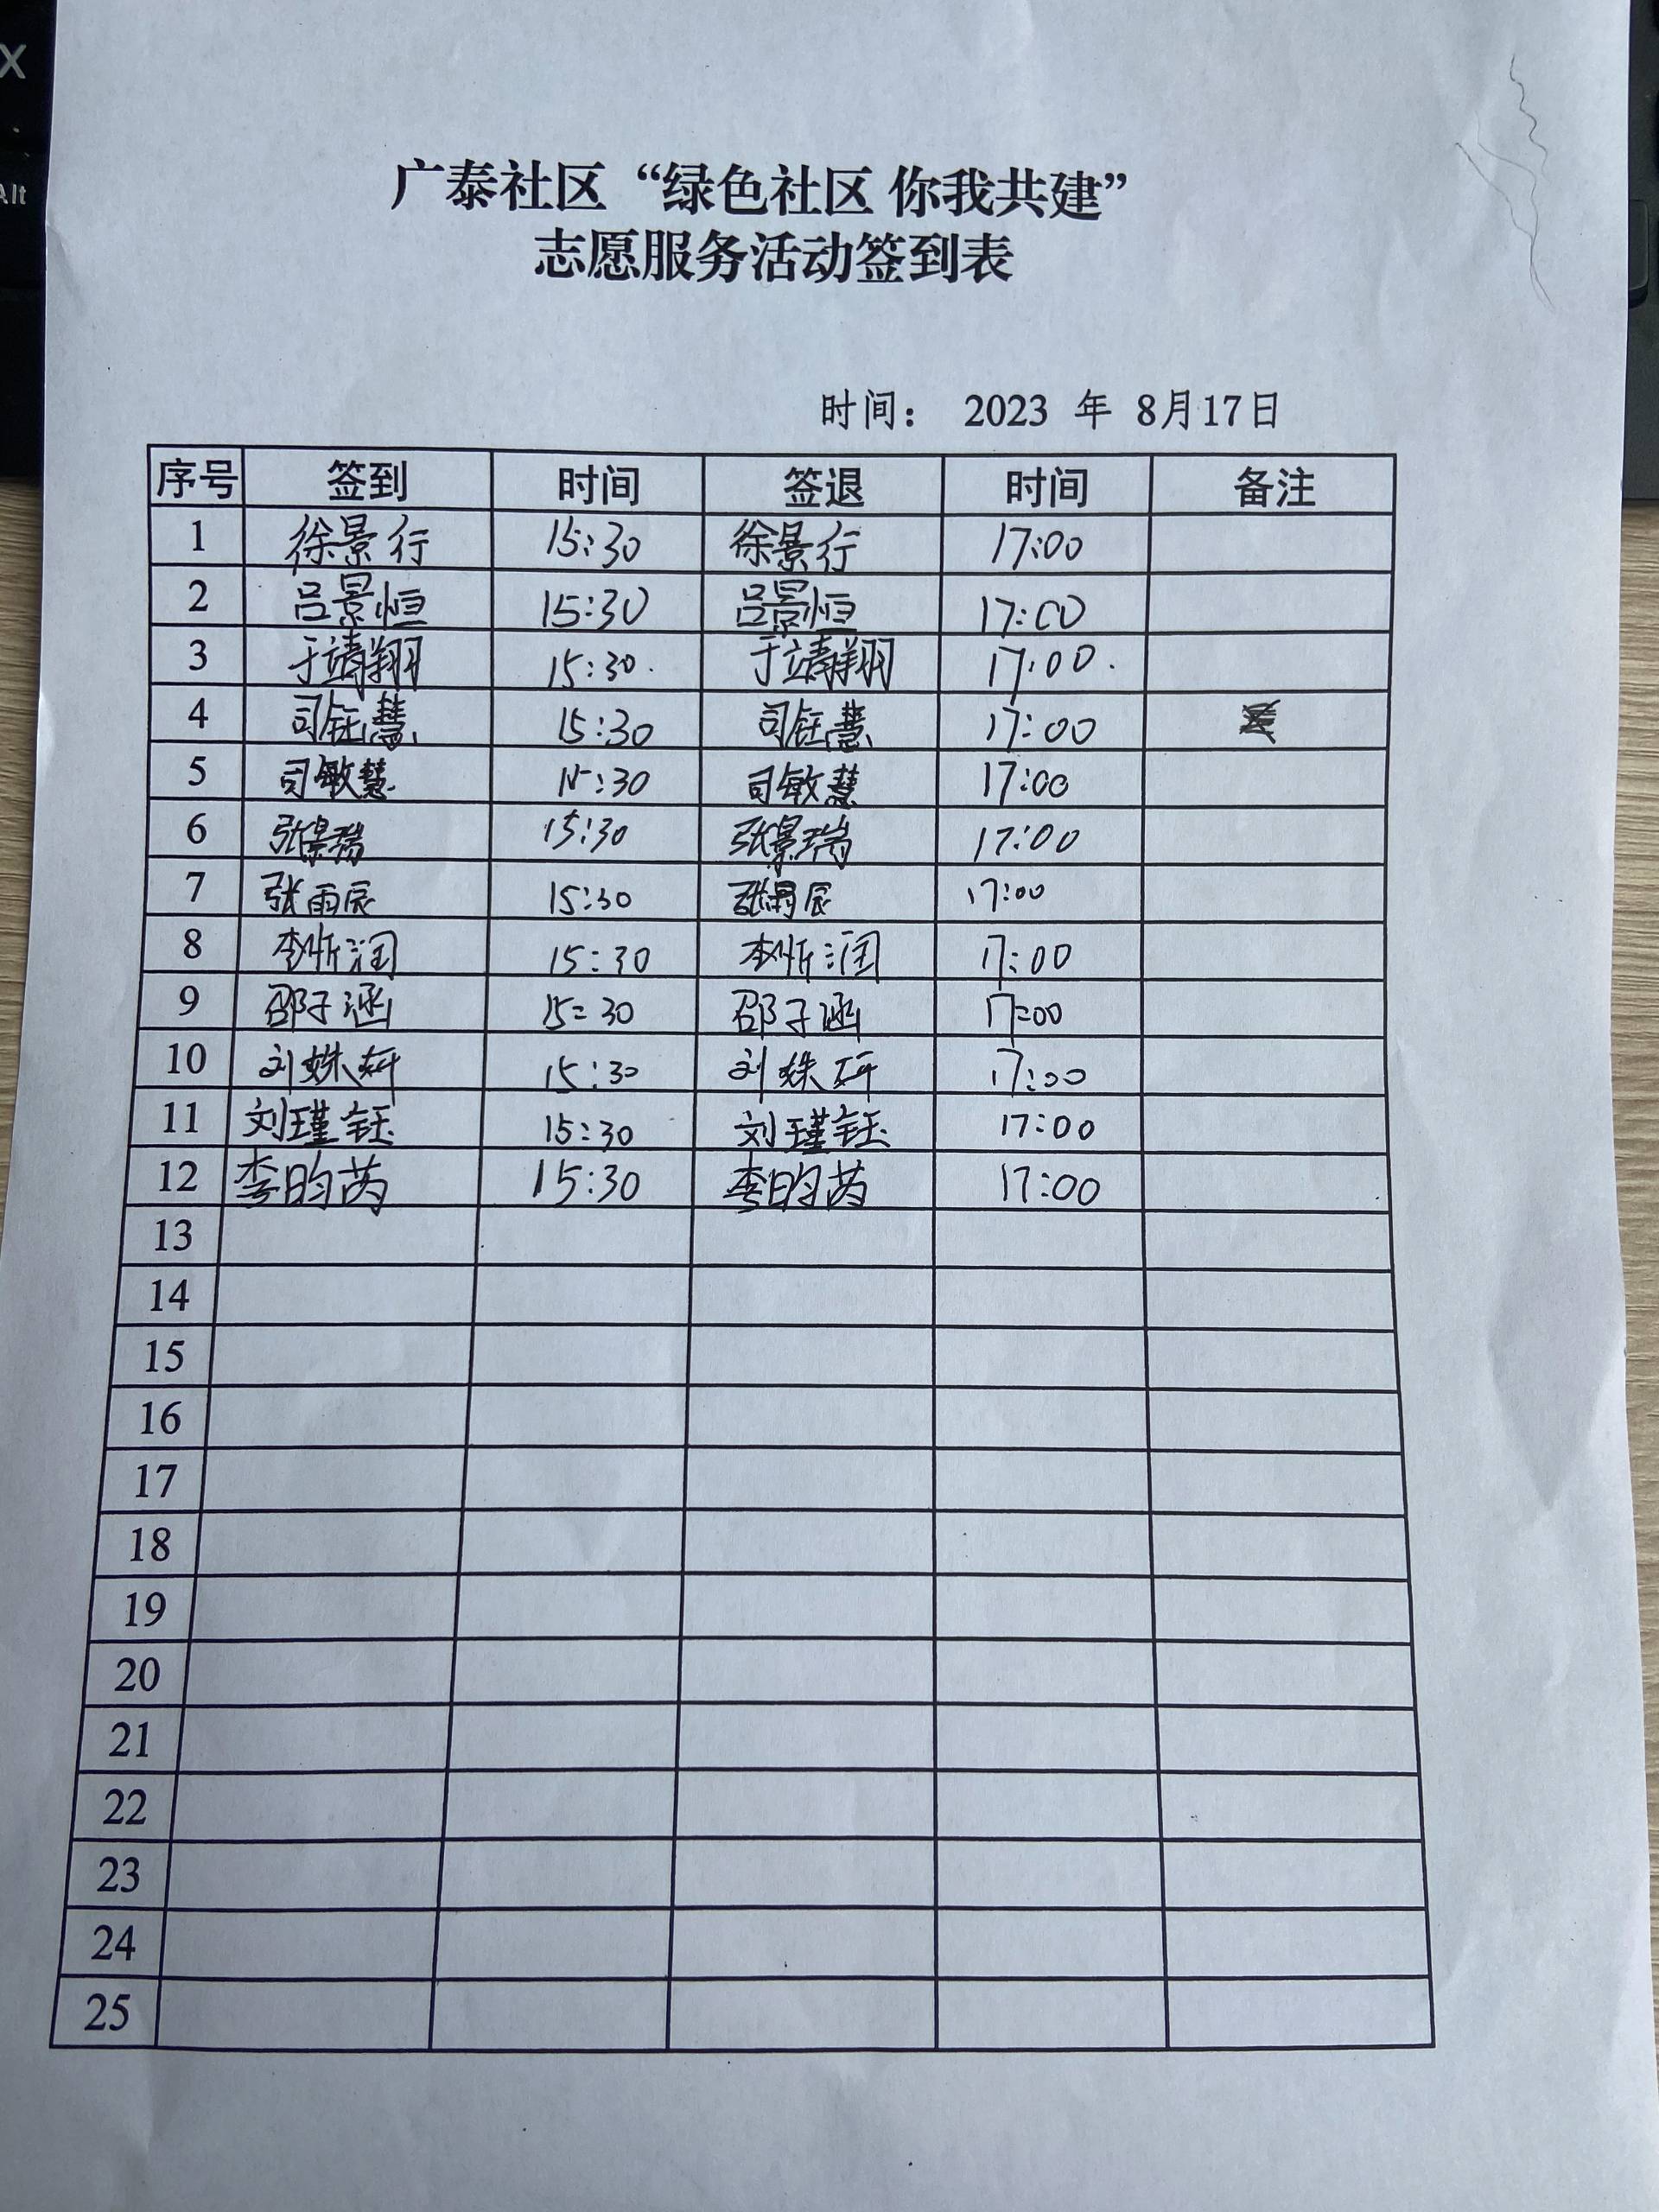 广泰社区“绿色社区 你我共建”
志愿服务活动签到表
时间： 2023 年 8月17日
序号 签到 时间 签退 时间 备注
1 徐景行 15:30 徐景行 17:00
2 吕景恒 15:30 吕景恒 17:00
3 于靖翔 15:30. 于靖翔 17:00.
4 司钰慧 15:30 司钰慧 17:00
5 司敏慧 15:30 司敏慧 17:00
6 张景瑞 15:30 张景瑞 17:00
7 张雨辰 15:30 张雨辰 17:00
8 李忻润 15:30 李忻润 17:00
9 邵子涵 15:30 邵子涵 17:00
10 刘姝妍 15:30 刘姝研 17:00
11 刘瑾钰 15:30 刘瑾钰 17:00
12 李昀芮 15:30 李昀芮 17:00
13
14
15
16
17
18
19
20
21
22
23
24
25
X
Alt